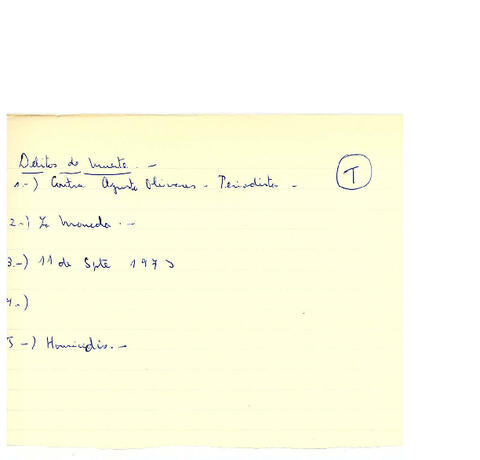 Delitos de muerte. -
1.-) Contra Augusto Olivares - Periodista -
T
2.-) La Moneda. -
3.-) 11 de Spte 1973
4.-)
5-) Homicidio. -